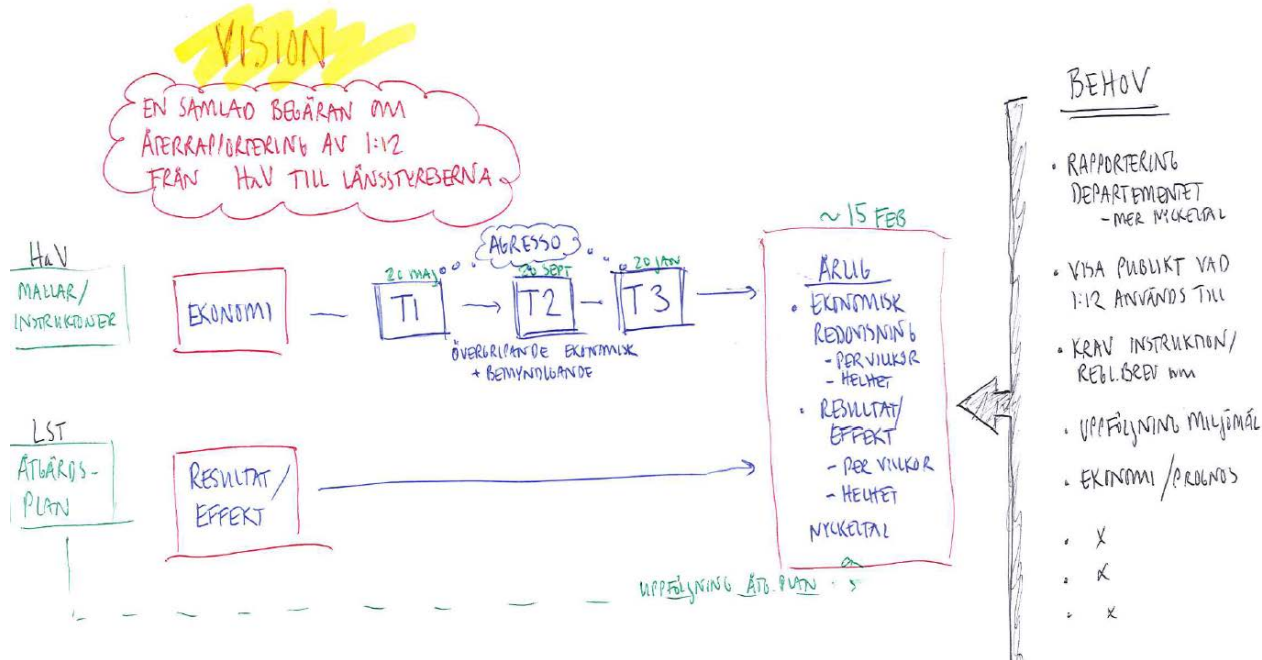 VISION
EN SAMLAD BEGÄRAN OM
ÅTERRAPPORTERING AV 1:12
FRÅN HaV TILL LÄNSSTYRELSERNA
HaV
MALLAR/
INSTRUKTIONER
EKONOMI
AGRESSO
20 MAJ
20 SEPT
20 JAN
T1
T2
T3
ÖVERGRIPANDE EKONOMISK
+ BEMYNDIGANDE
LST
ÅTGÄRDS-
PLAN
RESULTAT/
EFFEKT
UPPFÖLJNING ÅTG. PLAN
~ 15 FEB
ÅRLIG
• EKONOMISK
REDOVISNING
- PER VILLKOR
- HELHET
• RESULTAT/
EFFEKT
- PER VILLKOR
- HELHET
NYCKELTAL
BEHOV
• RAPPORTERING
DEPARTEMENTET
- MER NYCKELTAL
• VISA PUBLIKT VAD
1:12 ANVÄNDS TILL
• KRAV INSTRUKTION/
REGL.BREV mm
• UPPFÖLJNING MILJÖMÅL
• EKONOMI / PROGNOS
• X
• X
• X